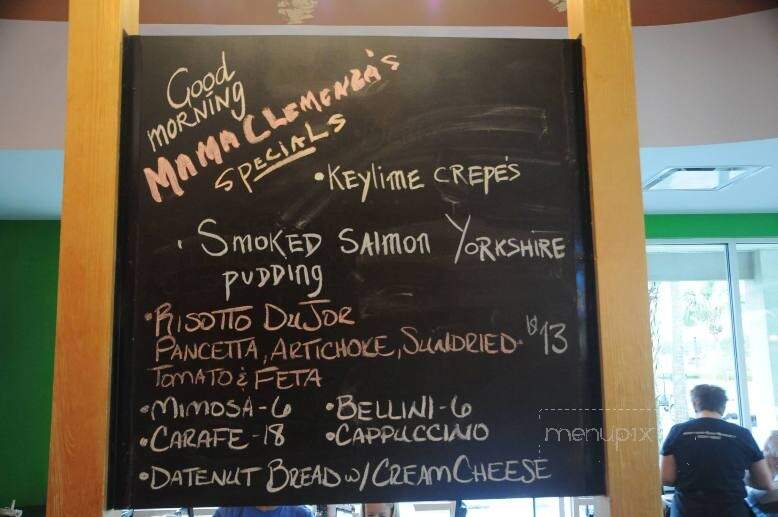 Good
MORNING
MAMA CLEMENZA'S
SPECIALS
•KEYLIME CREPE'S
• SMOKED SALMON YORKSHIRE
PUDDING
•RISOTTO DUJOR
PANCETTA, ARTICHOKE, SUNDRIED $13
TOMATO & FETA
•MIMOSA-6 •BELLINI-6
•CARAFE-18 •CAPPUCCINO
•DATENUT BREAD w/ CREAM CHEESE
menupix